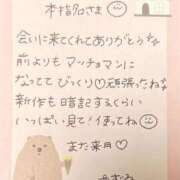 本指名さま
会いに来てくれてありがとうな
前よりも マッチョマンに
なっててびっくり♡頑張ったねな
新作も暗記するくらい
いっぱい見て!使ってね
また来月♡